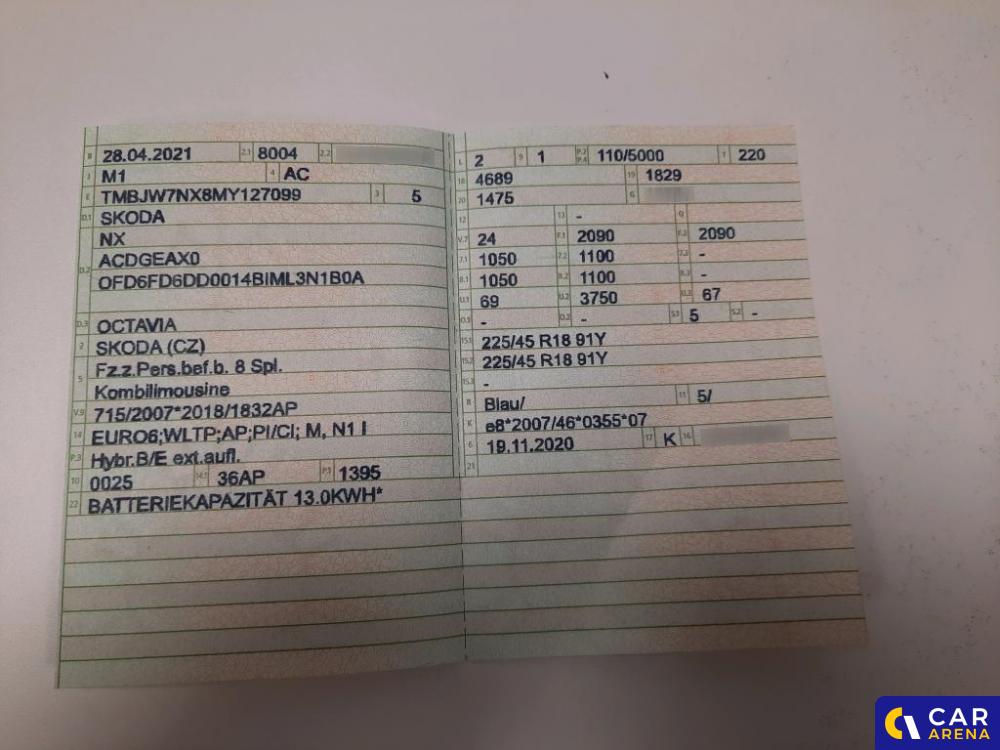 B 28.04.2021 2.1 8004 2.2
J M1 4 AC
E TMBJW7NX8MY127099 3 5
D.1 SKODA
NX
D.2 ACDGEAX0
OFD6FD6DD0014BIML3N1B0A
D.3 OCTAVIA
2 SKODA (CZ)
5 Fz.z.Pers.bef.b. 8 Spl.
Kombilimousine
V.9 715/2007*2018/1832AP
14 EURO6;WLTP;AP;PI/CI; M, N1 I
P.3 Hybr.B/E ext.aufl.
10 0025 14.1 36AP P.1 1395
22 BATTERIEKAPAZITÄT 13.0KWH*
L 2 9 1 P.2 P.4 110/5000 T 220
18 4689 19 1829
20 1475 G
12 13 - Q
V.7 24 F.1 2090 F.2 2090
7.1 1050 7.2 1100 7.3 -
8.1 1050 8.2 1100 8.3 -
U.1 69 U.2 3750 U.3 67
O.1 - O.2 - S.1 5 S.2 -
15.1 225/45 R18 91Y
15.2 225/45 R18 91Y
15.3 -
R Blau/ 11 5/
K e8*2007/46*0355*07
6 19.11.2020 17 K 16
21
CAR
ARENA